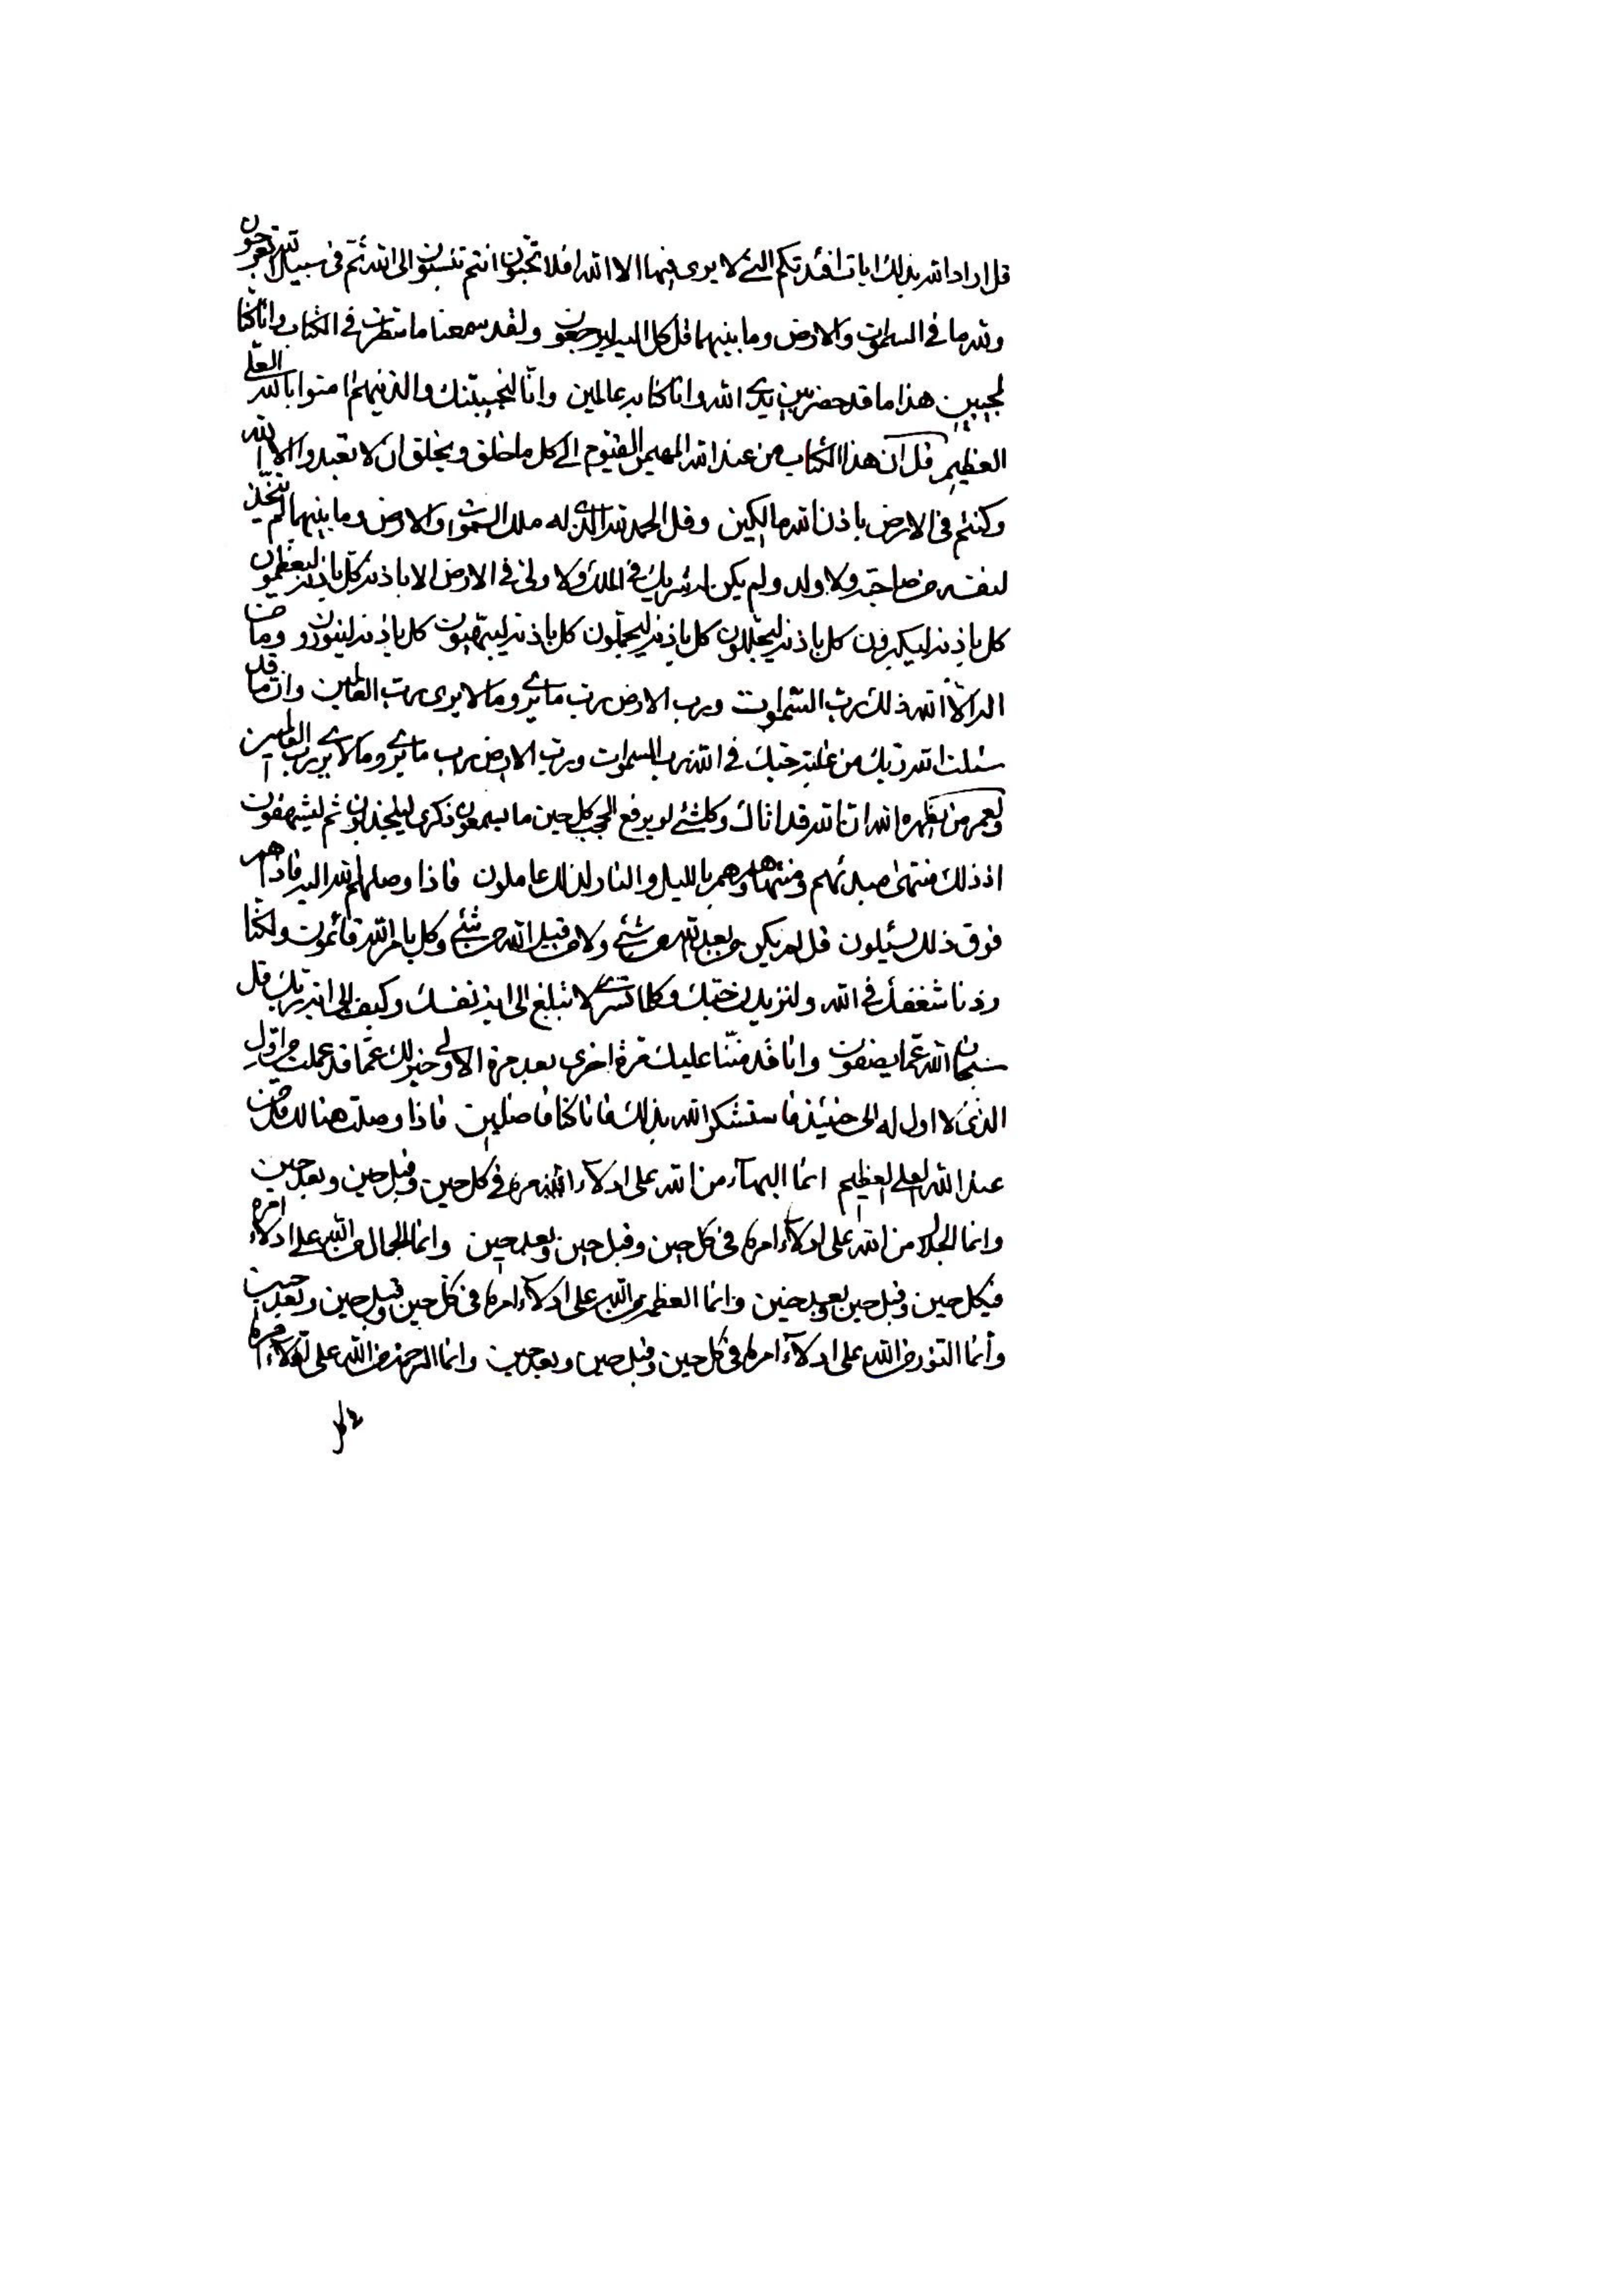 قل اراد الله بذلك ايات افئدتكم التي لا يرى فيها الا الله افلا تحبون انتم تنسبون الى الله ثم في سبيل الله
ولله ما في السموات والارض وما بينهما قل كل اليه ليرجعون ولقد سمعنا ما سطرت في الكتاب وانا كنا
لمجيبين هذا ما قد حضر بين يدي الله وانا كنا به عالمين وانا لنجيبنك والذينهم امنوا بالله العلي
العظيم قل ان هذا الكتاب من عند الله المهيمن القيوم الى كل ما خلق ويخلق ان لا تعبدوا الا الله
وكنتم في الارض باذن الله مالكين وقل الحمد لله الذي له ملك السموات والارض وما بينهما لم يتخذ
لنفسه من صاحبة ولا ولد ولم يكن له شريك في الملك ولا ولي في الارض الا باذنه كل باذنه ليعظمون
كل باذنه ليكبرون كل باذنه ليجللون كل باذنه ليجملون كل باذنه ليبتهيون كل باذنه لينورون وما من
اله الا الله ذلك رب السموات ورب الارض رب ما يرى وما لا يرى رب العالمين وان ما قد
سئلت الله ربك من غلبة حبك في الله رب السموات ورب الارض رب ما يرى وما لا يرى رب العالمين
ولعمر من يظهره الله ان الله قد اناك وكلشئ لو يرفع الحجب كل حين ما يسمعون ذكرى لينجذبون ثم ليشهقون
اذ ذلك منتهى مبدئهم ومنتهاهم وهم بالليل والنهار لذلك عاملون فاذا وصلهم الله اليه فاذا هم
فوق ذلك يسئلون قل لم يكن من بعد الله من شئ ولا من قبل الله من شئ وكل بامر الله قائمون ولكنا
زدنا شغفك في الله ولنزيدن حبك وكلما تسرى لا تبلغ الى نفسك وكيف الى الله ربك قل
سبحان الله عما يصفون وانا قد مننا عليك مرة اخرى بعد مرة الاولى خير لك عما قد عملت من اول
الذي لا اول له الى حينئذ فاستشكر الله بذلك فانا كنا فاضلين فاذا وصلت هنالك قل من
عند الله العلي العظيم انما البهاء من الله على ادلاء امره في كل حين وقبل حين وبعد حين
وانما الجلال من الله على ادلاء امره في كل حين وقبل حين وبعد حين وانما الجمال من الله على ادلاء امره
في كل حين وقبل حين وبعد حين وانما العظمة من الله على ادلاء امره في كل حين وقبل حين وبعد حين
وانما النور من الله على ادلاء امره في كل حين وقبل حين وبعد حين وانما الرحمة من الله على ادلاء امره